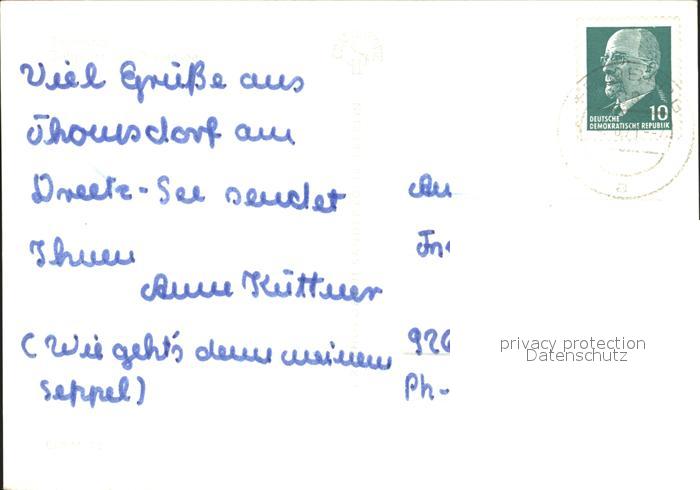 Viel Grüße aus
Thomsdorf am
Dreetz-See sendet
Ihnen
Anne Küttner
(Wie geht's denn meinem
Seppel)
An
926
Ph-
10
DEUTSCHE
DEMOKRATISCHE REPUBLIK
privacy protection
Datenschutz